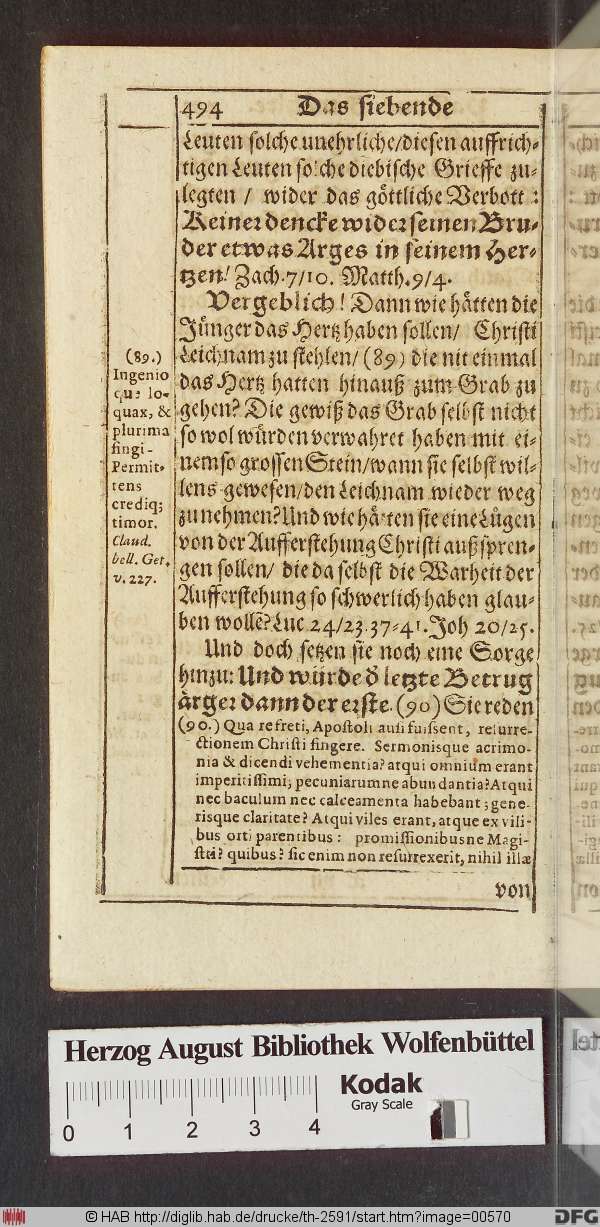 494 Das siebende
Leuten solche unehrliche/diesen auffrich-
tigen Leuten solche diebische Grieffe zu-
legten / wider das göttliche Verbott:
Keiner dencke wider seinen Bru-
der etwas Arges in seinem Her-
tzen! Zach. 7/10. Matth. 9/4.
Vergeblich! Dann wie hätten die
Jünger das Hertz haben sollen/ Christi
Leichnam zu stehlen/ (89) die nit einmal
das Hertz hatten hinauß zum Grab zu
gehen? Die gewiß das Grab selbst nicht
so wol würden verwahret haben mit ei-
nem so grossen Stein/wann sie selbst wil-
lens gewesen/den Leichnam wieder weg
zunehmen? Und wie hätten sie eine Lügen
von der Aufferstehung Christi außspren-
gen sollen/ die da selbst die Warheit der
Aufferstehung so schwerlich haben glau-
ben wollē? Luc 24/23.37-41. Joh 20/25.
Und doch setzen sie noch eine Sorge
hinzu: Und würde d̕ letzte Betrug
ärger dann der erste. (90) Sie reden
(89.)
Ingenio
que lo-
quax, &
plurima
fingi-
Permit-
tens
crediq;
timor.
Claud.
bell. Get.
v. 227.
(90.) Qua re freti, Apostoli ausi fuissent, resurre-
ctionem Christi fingere. Sermonisque acrimo-
nia & dicendi vehementia? atqui omnium erant
imperitissimi; pecuniarumne abundantia? Atqui
nec baculum nec calceamenta habebant; gene-
risque claritate? Atqui viles erant, atque ex vili-
bus orti parentibus: promissionibusne Magi-
stri? quibus? sic enim non resurrexerit, nihil illæ
von
Herzog August Bibliothek Wolfenbüttel
Kodak
Gray Scale
0 1 2 3 4
© HAB http://diglib.hab.de/drucke/th-2591/start.htm?image=00570
DFG